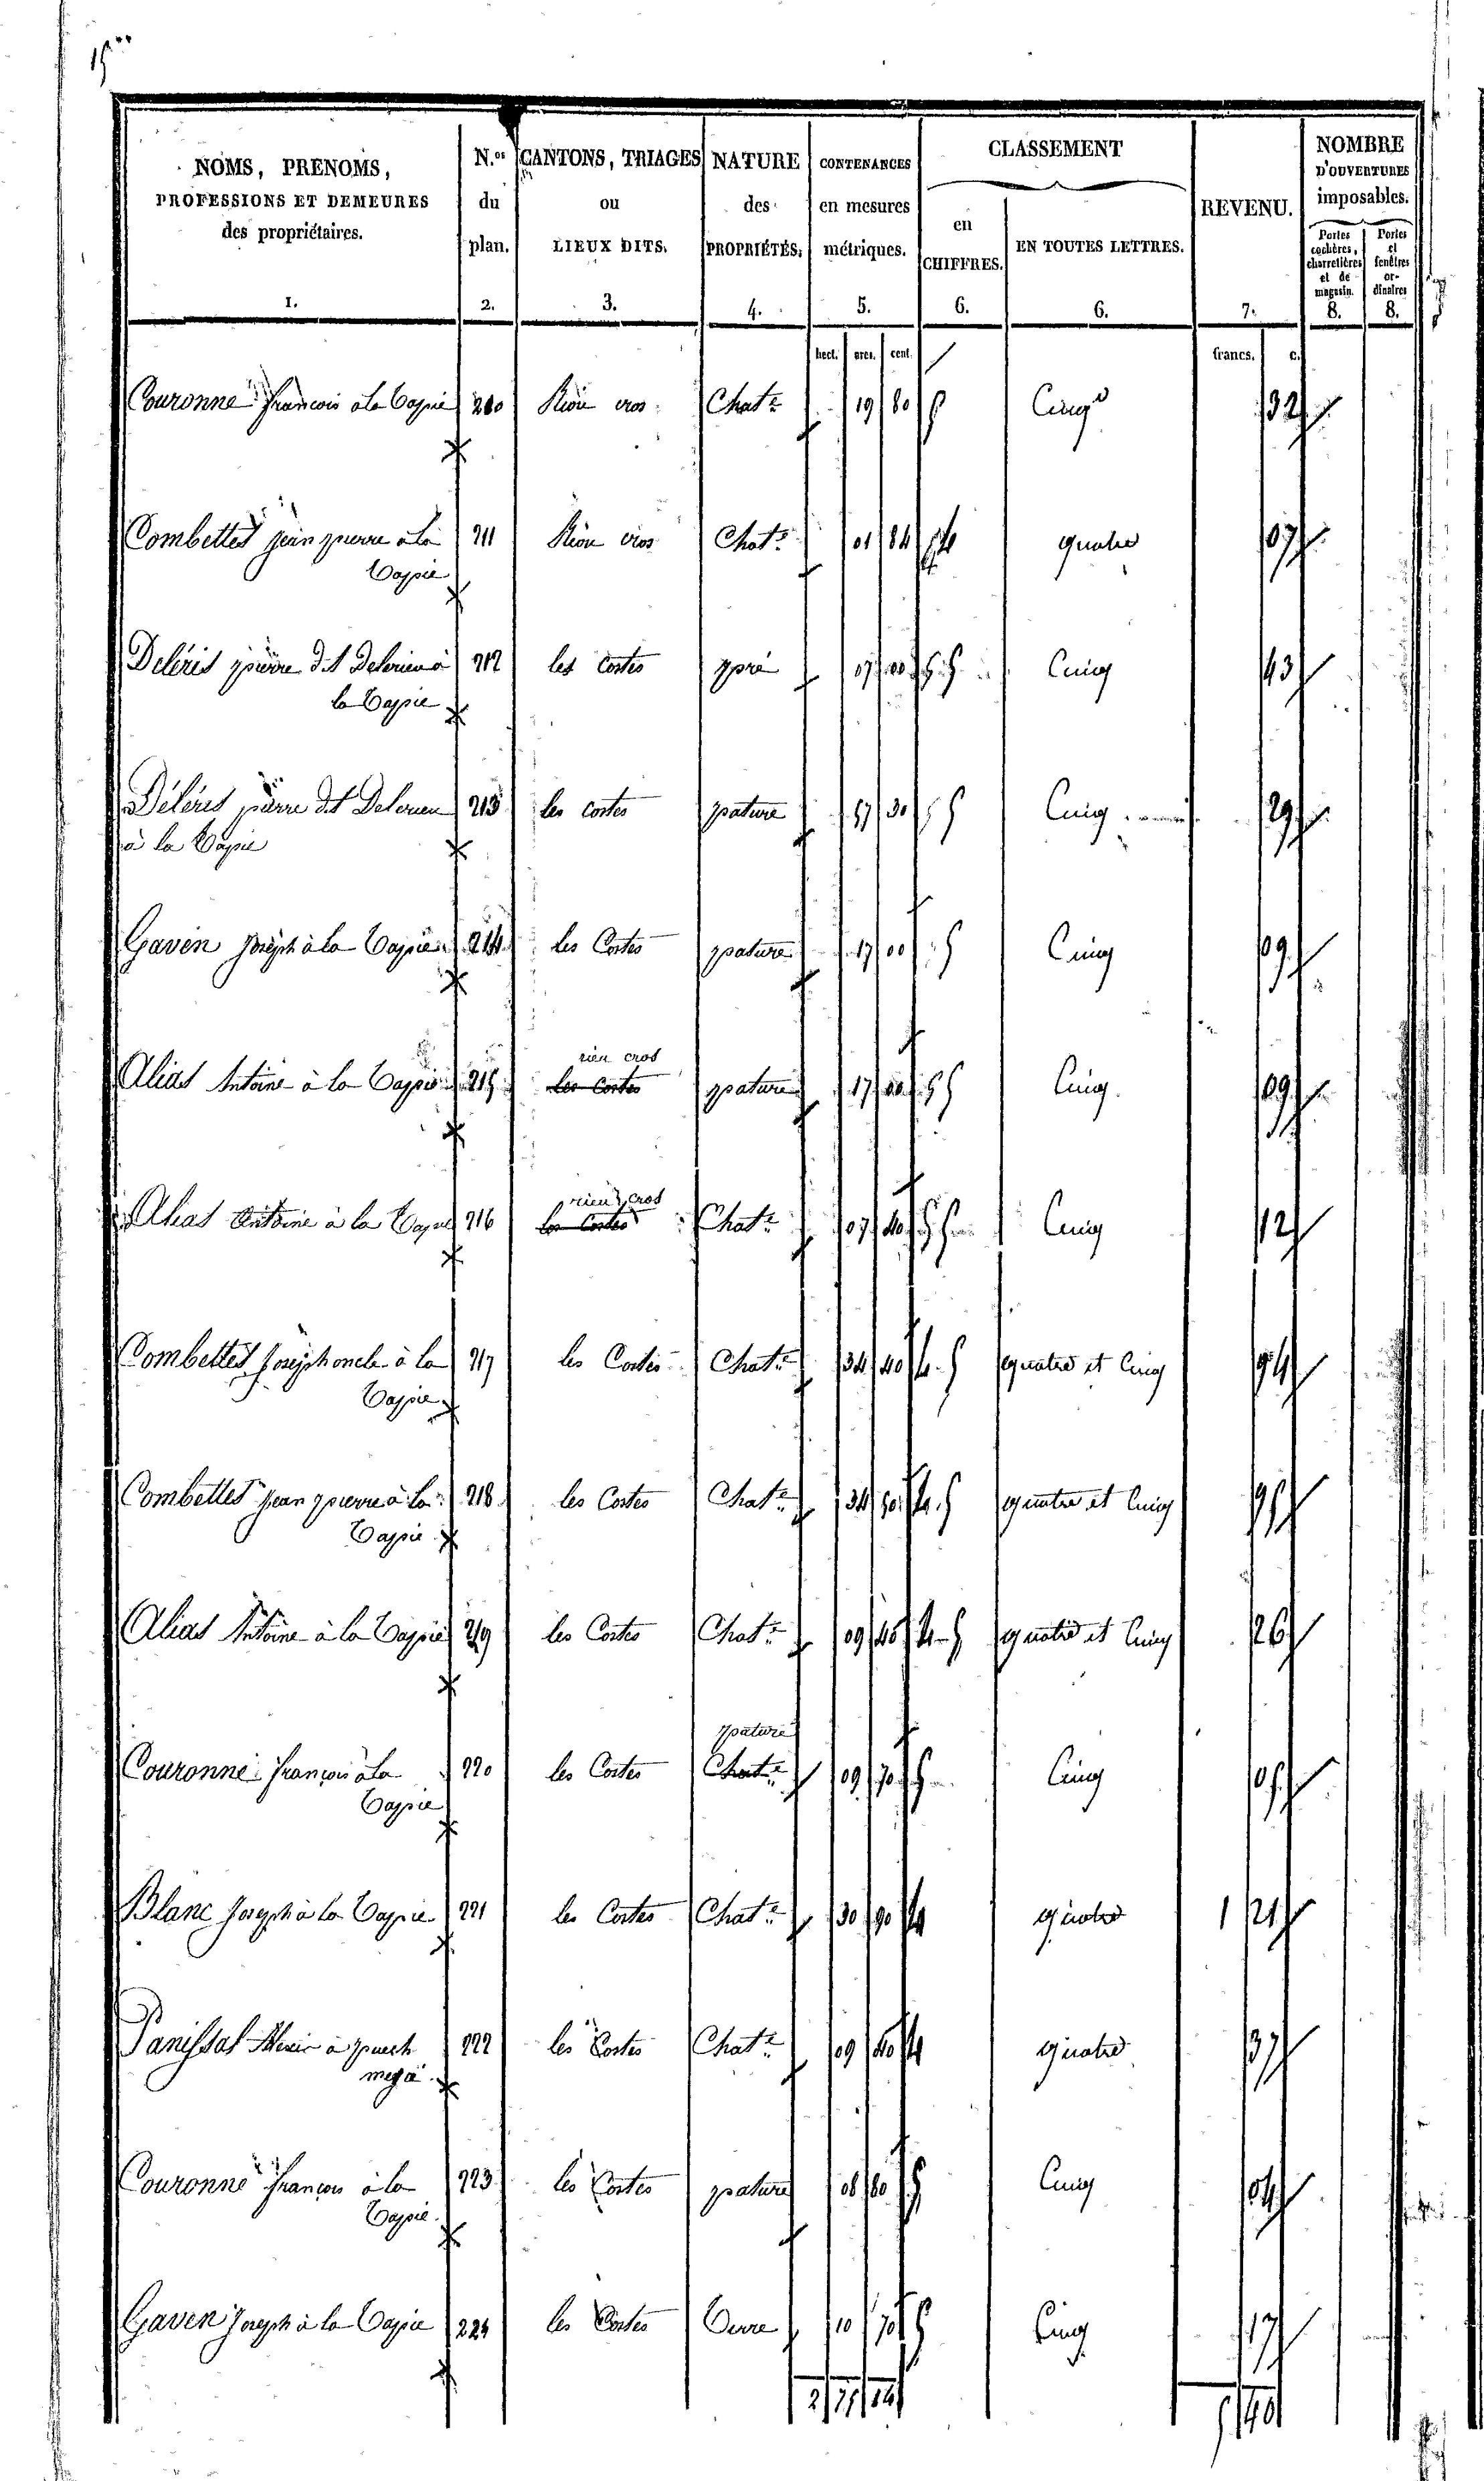 15
NOMS, PRENOMS,
PROFESSIONS ET DEMEURES
des propriétaires.
1.
N.os
du
plan.
2.
CANTONS, TRIAGES
ou
LIEUX DITS.
3.
NATURE
des
PROPRIÉTÉS.
4.
CONTENANCES
en mesures
métriques.
5.
CLASSEMENT
en
CHIFFRES.
6.
EN TOUTES LETTRES.
6.
REVENU.
7.
NOMBRE
D'OUVERTURES
imposables.
Portes
cochères,
charretières
et de
magasin.
8.
Portes
et
fenêtres
or-
dinaires
8.
hect. ares. cent. francs. c.
Couronne françois à la Capie 210 Riou cros Chat.re 19 80 5 Cinq 32
Combettes jean pierre à la 211 Riou cros Chat.re 01 84 4 quatre 07
Capie
Deléris pierre dit Delerieu à 212 les Costes pré 07 00 5 Cinq 43
la Capie
Déléris pierre dit Delerieu 213 les costes pature 57 30 5 Cinq 29
à la Capie
Gaven Joseph à la Capie 214 les Costes pature 17 00 5 Cinq 09
rieu cros
Alias Antoine à la Capie 215 les Costes pature 17 00 5 Cinq 09
rieu cros
Alias Antoine à la Capie 216 les Costes Chat.re 07 40 5 Cinq 12
Combettes Joseph oncle à la 217 les Costes Chat.re 34 40 4.5 quatre et Cinq 94
Capie
Combettes jean pierre à la 218 les Costes Chat.re 34 50 4.5 quatre et Cinq 95
Capie
Alias Antoine à la Capie 219 les Costes Chat.re 09 40 4-5 quatre et Cinq 26
pature
Couronne françois à la 220 les Costes Chat.re 09 70 5 Cinq 05
Capie
Blanc Joseph à la Capie 221 les Costes Chat.re 30 90 4 quatre 1 21
Panissat à puech 222 les Costes Chat.re 09 40 4 quatre 37
Couronne françois à la 223 les Costes pature 08 80 5 Cinq 04
Capie
Gaven Joseph à la Capie 224 les Costes Terre 10 70 5 Cinq 17
2 75 14 5 40